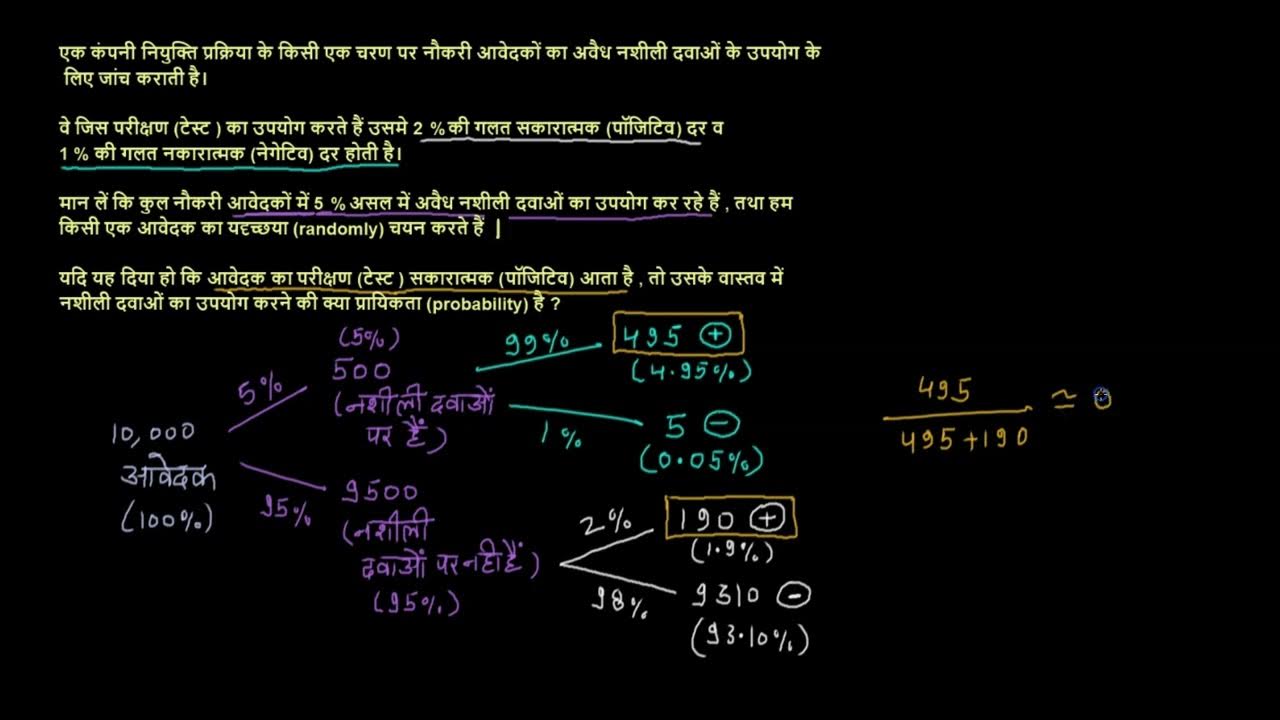 एक कंपनी नियुक्ति प्रक्रिया के किसी एक चरण पर नौकरी आवेदकों का अवैध नशीली दवाओं के उपयोग के
लिए जांच कराती है।
वे जिस परीक्षण (टेस्ट ) का उपयोग करते हैं उसमे 2 % की गलत सकारात्मक (पॉजिटिव) दर व
1 % की गलत नकारात्मक (नेगेटिव) दर होती है।
मान लें कि कुल नौकरी आवेदकों में 5 % असल में अवैध नशीली दवाओं का उपयोग कर रहे हैं , तथा हम
किसी एक आवेदक का यदृच्छया (randomly) चयन करते हैं |
यदि यह दिया हो कि आवेदक का परीक्षण (टेस्ट ) सकारात्मक (पॉजिटिव) आता है , तो उसके वास्तव में
नशीली दवाओं का उपयोग करने की क्या प्रायिकता (probability) है ?
10,000
आवेदक
(100%)
5%
(5%)
500
(नशीली दवाओं
पर हैं )
99%
495 +
(4.95%)
1%
5 -
(0.05%)
95%
9500
(नशीली
दवाओं पर नही हैं )
(95%)
2%
190 +
(1.9%)
98%
9310 -
(93.10%)
495
495+190
≃ 0